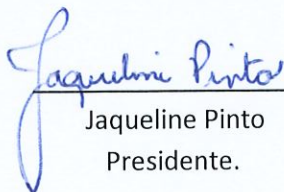 Jaqueline Pinto
Jaqueline Pinto
Presidente.